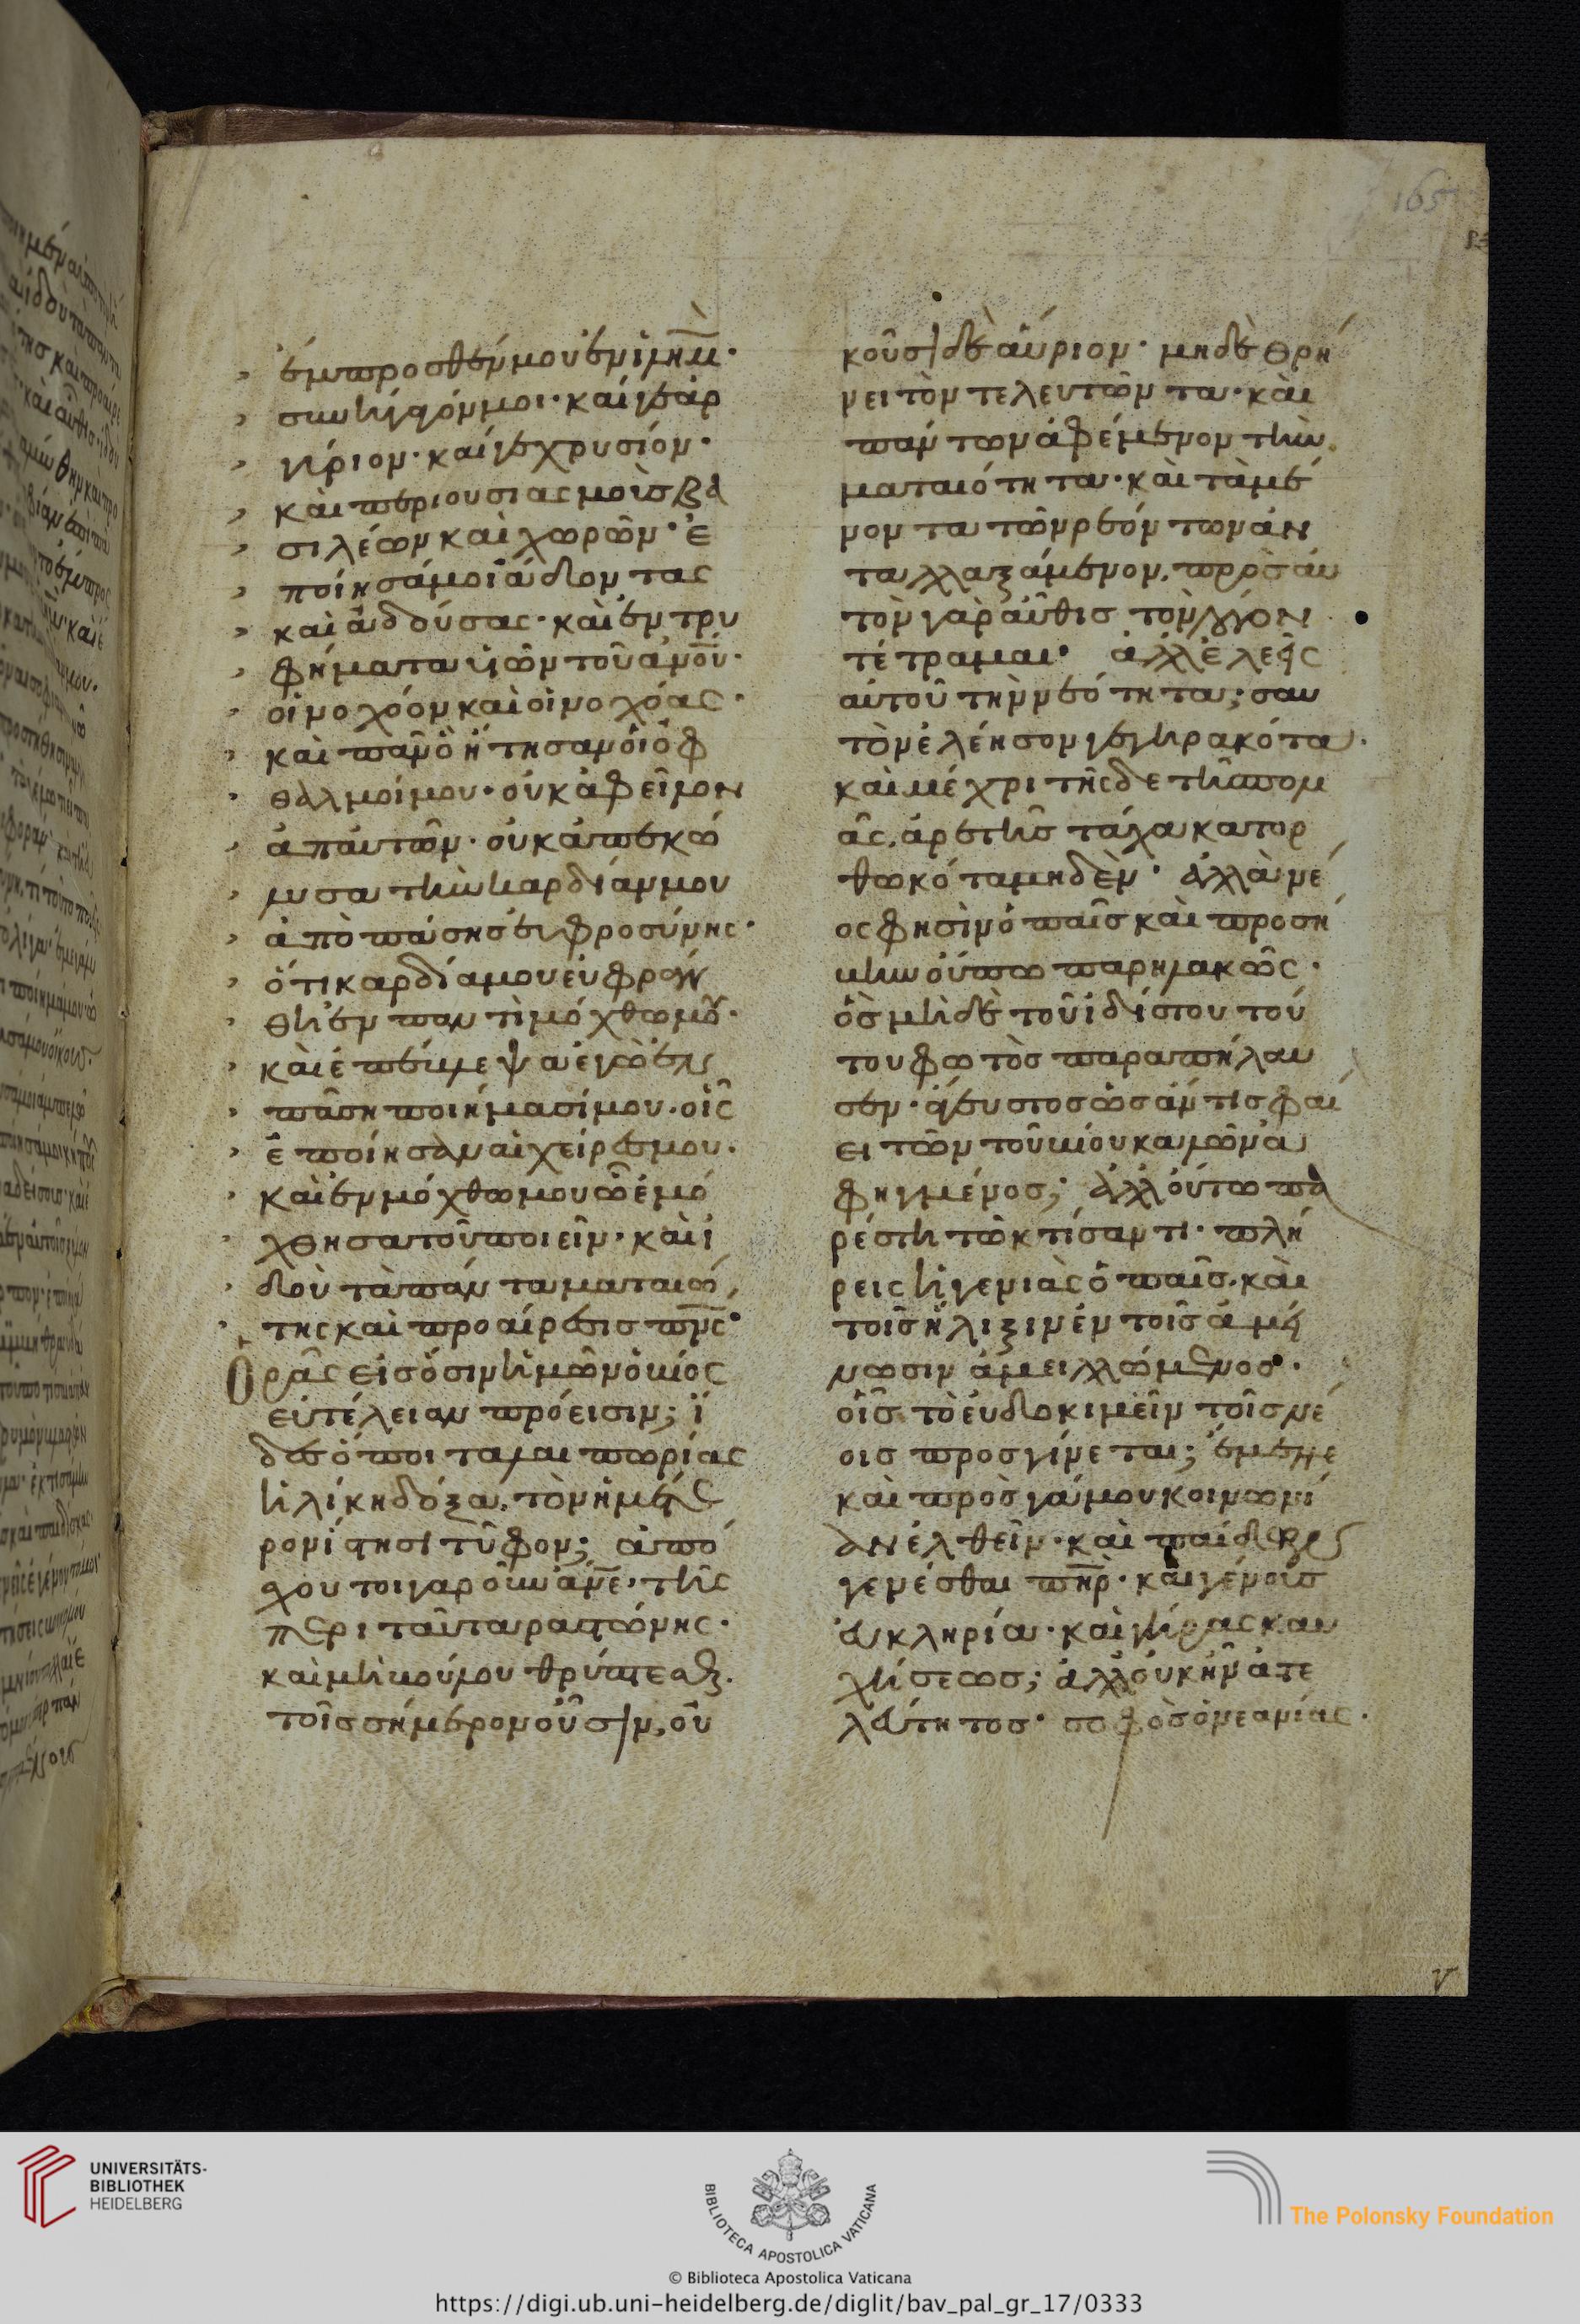 165
ἔμπροσθέν μου ἐν ἰλημ̄·
συνήγαγόν μοι· καί γε ἀρ
γύριον· καί γε χρυσίον·
καὶ περιουσιασμοὺς βα
σιλέων καὶ χωρῶν· ἐ
ποίησά μοι ἄδοντας
καὶ ἀδδούσας· καὶ ἐν τρυ
φήματα υἱῶν τοῦ ἀνο͞υ·
οἰνοχόον καὶ οἰνοχόας·
καὶ πᾶν ὃ ᾔτησαν οἱ ὀφ
θαλμοί μου· οὐκ ἀφεῖλον
ἀπ' αὐτῶν· οὐκ ἀπεκώ
λυσα τὴν καρδίαν μου
ἀπὸ πάσης εὐφροσύνης·
ὅτι καρδία μου εὐφράν
θη ἐν παντὶ μόχθω μου·
καὶ ἐπέβλεψα ἐγὼ ἐν
πᾶσι ποιήμασί μου· οἷς
ἐποίησαν αἱ χεῖρές μου·
καὶ ἐν μόχθω μου ὧ ἐμό
χθησα τοῦ ποιεῖν· καὶ ἰ
δοὺ τὰ πάντα ματαιό
της καὶ προαίρεσις πν͞ς·
Ὁρᾶς εἰς ὅσην ἡμῶν ὁ βίος
εὐτέλειαν πρόεισιν; ἴ
δες ὅποι ταλαιπωρίας
ἡλίκη δόξα, τὸν ἡμέτε
ρον ἵστησι τῦφον; ἀπό
σχου τοιγαροῦν ἄν͞ε· τῆς
περὶ ταῦτα ῥαστώνης·
καὶ μὴ κούμου θρύπτεσθαι
τοῖς σήμερον οὖσιν, οὐ
κοῦσι δὲ αὔριον· μηδὲ θρή
νει τὸν τελευτῶντα· καὶ
πάντων ἀφέμενον τὴν
ματαιότητα· καὶ τὰ μέ
νοντα τῶν ῥεόντων ἀν
ταλλαξάμενον, πρὸς αὐ
τὸν γὰρ αὖθις τὸν λόγον
τέτραμαι· ἀλλ' ἐλεεῖς
αὐτοῦ τὴν νεότητα; σαυ
τὸν ἐλέησον γεγηρακότα·
καὶ μέχρι τῆσδε τῆς πολι
ᾶς, ἀρετῆς τάχα κατορ
θωκότα μηδέν· ἀλλὰ νέ
ος φησὶν ὁ παῖς καὶ προσή
βην οὔπω παρηλακώς·
ὃς μὴ δὲ τοῦ ἡδίστου τού
του φωτὸς παραπήλαυ
σεν· ἄγευστος ὡς ἄν τις φαί
ει τῶν τοῦ βίου καλῶν ἀ
φηγμένος; ἀλλ' οὕτω πα
ρέστη τῶ κτίσαντι· πλή
ρεις ἡγεμιὰς ὁ παῖς· καὶ
τοῖς ἥλιξιν ἐν τοῖς ἀμεί
νωσιν ἁμειλλώμενος·
οἷς τὸ εὐδοκιμεῖν τοῖς νέ
οις προσγίνεται; ἔμελλε
καὶ πρὸς γάμου κοινωνί
αν ἐλθεῖν· καὶ παίδων
γενέσθαι πη͞ρ· καὶ γένους
εὐκληρία· καὶ γήρας καυ
χήσεως; ἀλλ' οὐκ ἦν ἀτε
λεύτητος· σοφὸς ὁ νεανίας·
UNIVERSITÄTS-
BIBLIOTHEK
HEIDELBERG
BIBLIOTECA APOSTOLICA VATICANA
The Polonsky Foundation
© Biblioteca Apostolica Vaticana
https://digi.ub.uni-heidelberg.de/diglit/bav_pal_gr_17/0333